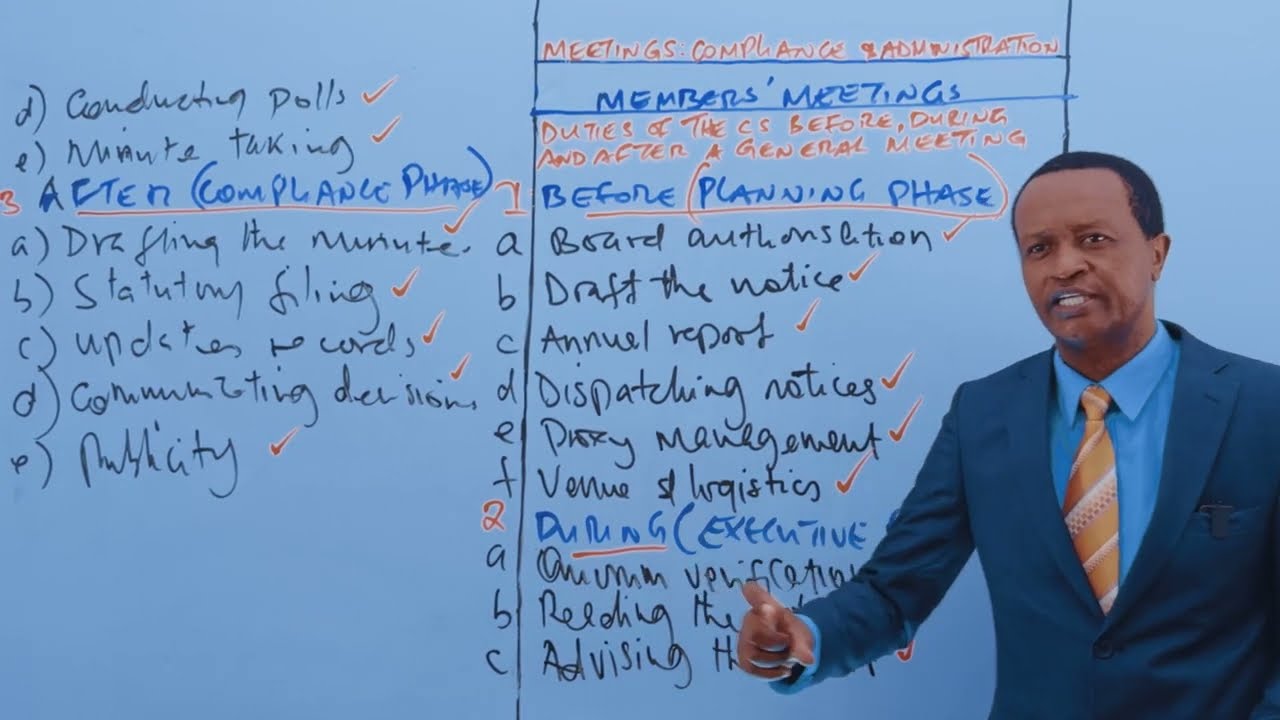 MEETINGS: COMPLIANCE & ADMINISTRATION
MEMBERS' MEETINGS
DUTIES OF THE CS BEFORE, DURING
AND AFTER A GENERAL MEETING
1 BEFORE (PLANNING PHASE)
a Board authorisation ✓
b Draft the notice ✓
c Annual report ✓
d Dispatching notices ✓
e Proxy management ✓
f Venue & logistics ✓
2 DURING (EXECUTIVE
a Quorum verification
b Reading the
c Advising ✓
d) Conducting polls ✓
e) Minute taking ✓
3 AFTER (COMPLIANCE PHASE)
a) Drafting the minutes ✓
b) Statutory filing ✓
c) updates records ✓
d) Communicating decisions ✓
e) Publicity ✓